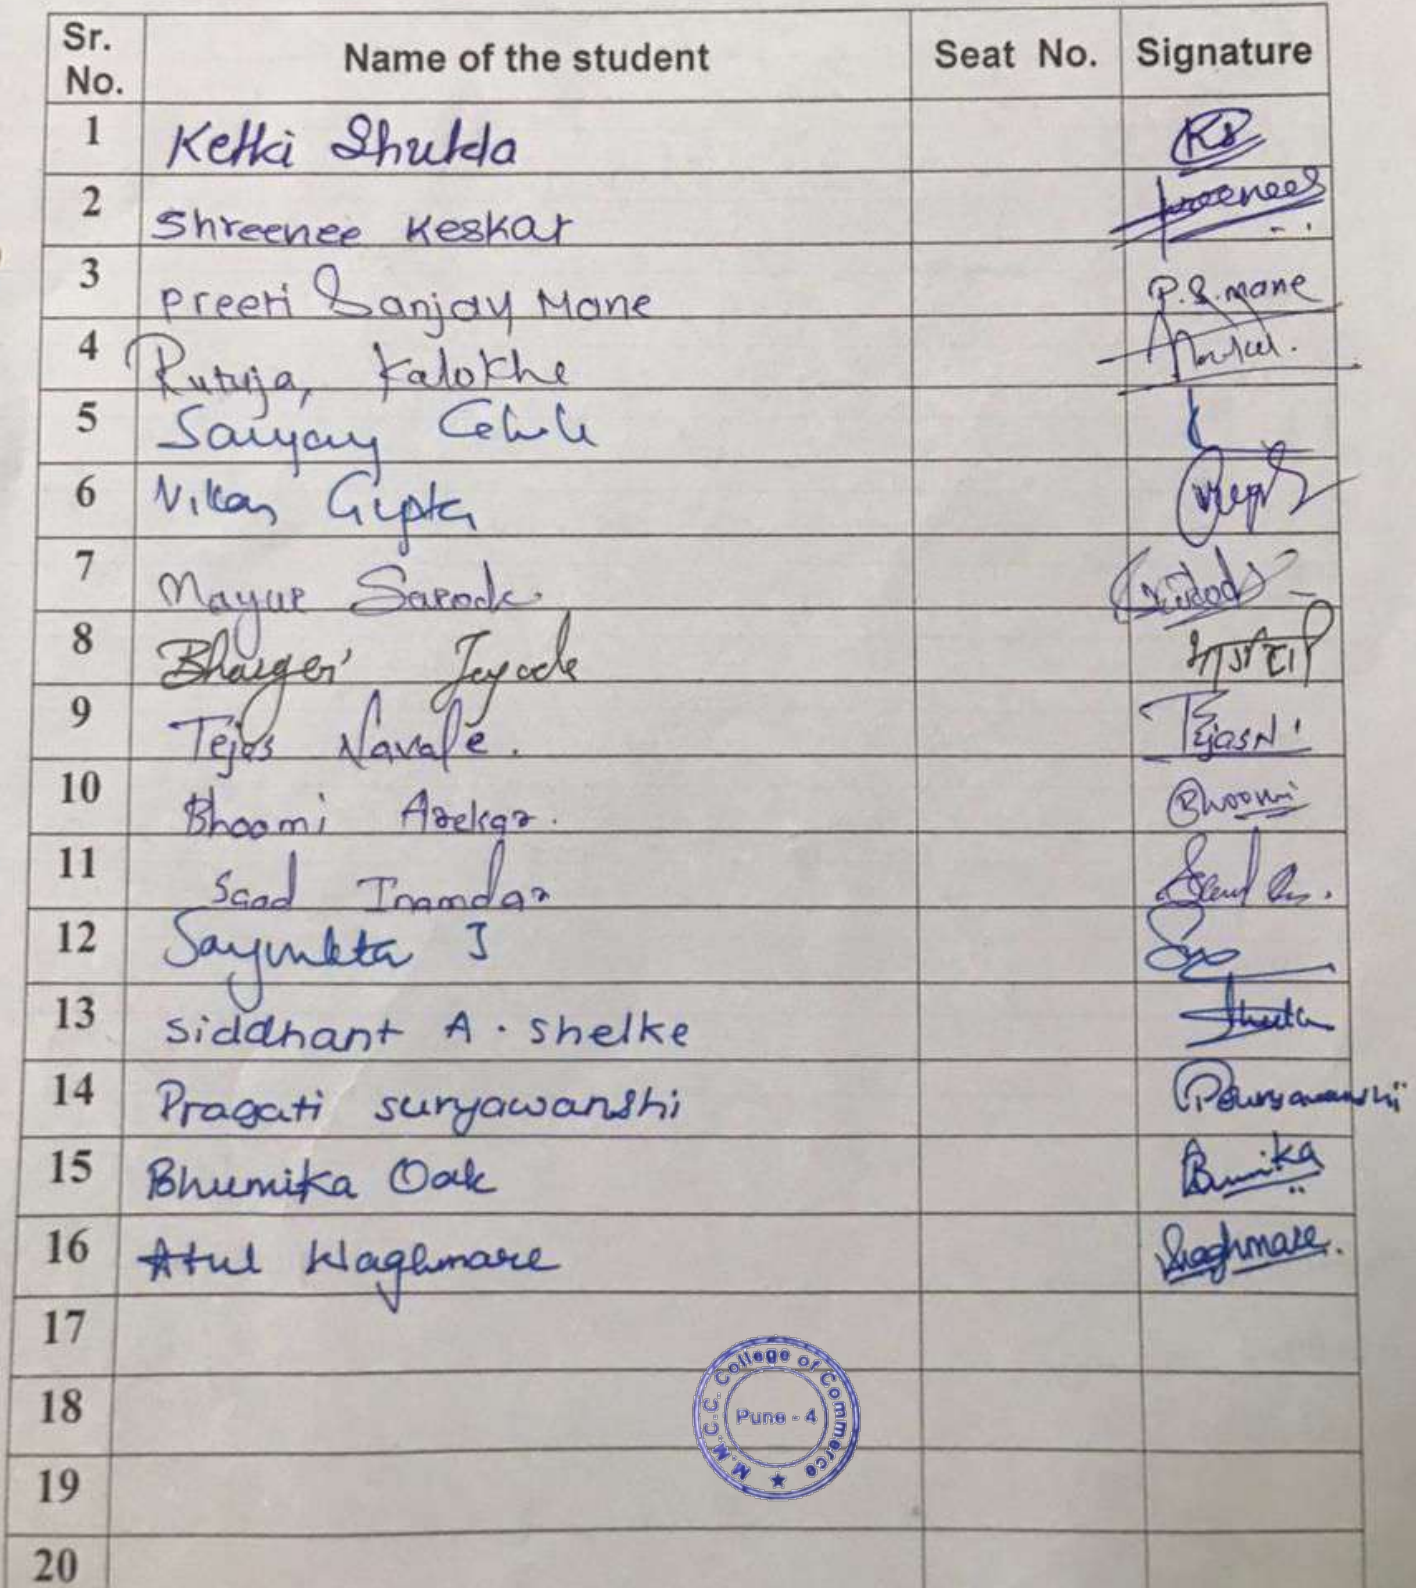 Sr. No. Name of the student Seat No. Signature
1 Ketki Shukla KS
2 Shreenee Keskar Shreenees
3 Preeti Sanjay Mane P.S.mane
4 Rutuja Kalokhe
5 Sanjay
6 Vikas Gupta
7 Mayur Sarode
8
9 Tejas Navale. TejasN
10 Bhoomi Arekar. Bhoomi
11 Saad Inamdar
12 Sayunkta J
13 Siddhant A. Shelke
14 Pragati suryawanshi Psuryawanshi
15 Bhumika Oak Bumika
16 Atul Waghmare Waghmare.
17
18
19
20
M.M.C.C. College of Commerce
Pune - 4